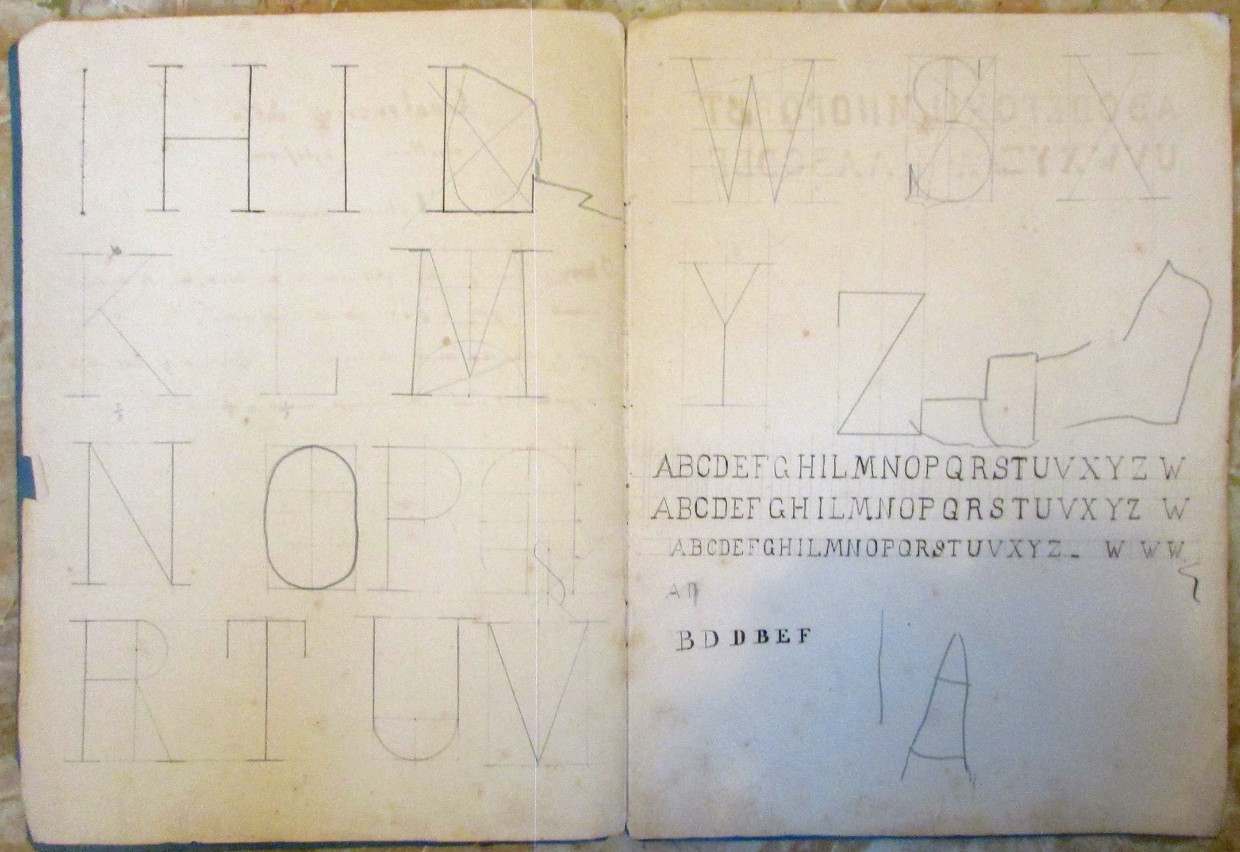 I H I D
K L M
N O P Q
R T U V
W S X
Y Z
ABCDEFGHILMNOPQRSTUVXYZ W
ABCDEFGHILMNOPQRSTUVXYZ W
ABCDEFGHILMNOPQRSTUVXYZ_ W WW
A
BD DBEF
I A